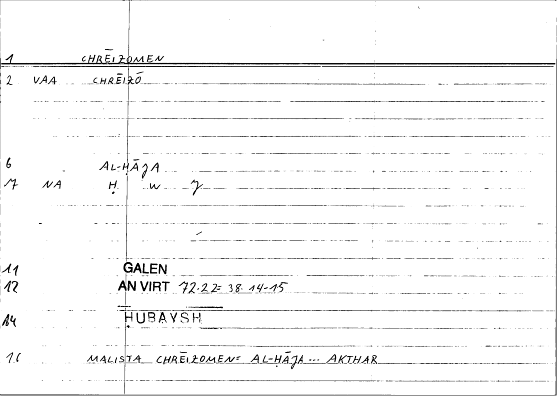 1 CHRĒIZOMEN
2 VAA CHRĒIZŌ
6 AL-ḤĀJA
7 NA Ḥ W J
11 GALEN
12 AN VIRT 72.22= 38.14-15
14 ḤUBAYSH
16 MALISTA CHRĒIZOMEN= AL-ḤĀJA... AKTHAR